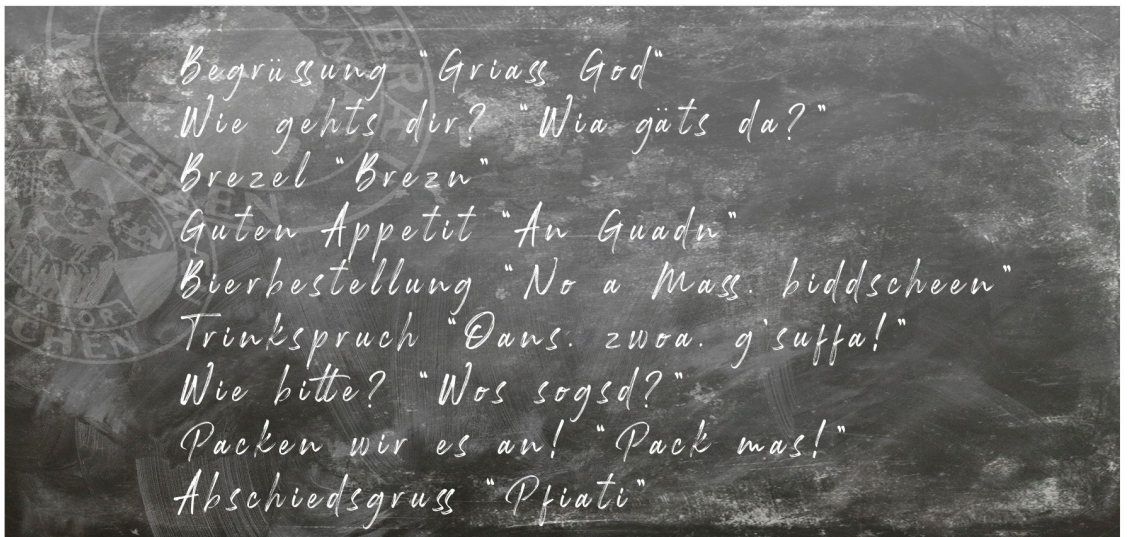 Begrüssung "Griass God"
Wie gehts dir? "Wia gäts da?"
Brezel "Brezn"
Guten Appetit "An Guadn"
Bierbestellung "No a Mass. biddscheen"
Trinkspruch "Oans. zwoa. g'suffa!"
Wie bitte? "Wos sogsd?"
Packen wir es an! "Pack mas!"
Abschiedsgruss "Pfiati"